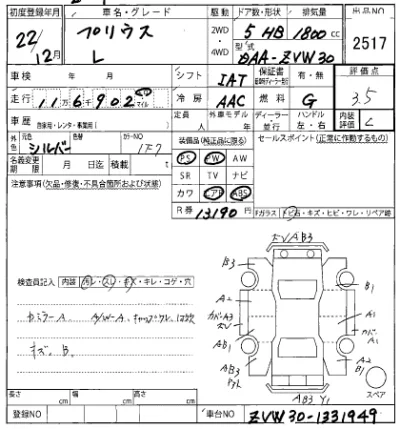 初度登録年月 車名・グレード 駆動 ドア数・形状 排気量 出品NO
22年12月 プリウス L 2WD・4WD 5 HB 1800cc 2517
型式 DAA-ZVW30
車検 年 月 シフト IAT 保証書 有・無 評価点
走行 11万6千902 マイル 冷房 AAC 燃料 G 3.5
車歴 自家用・レンタ・事業用( ) 定員 人 外車モデル 年 ディーラー・並行 ハンドル 左・右 内装評価 C
外色 元色 シルバー 色替 カラーNO 1F7 装備品(純正品に限る) セールスポイント(正常に作動するもの)
名義変更期限 月 日迄 積載 t PS PW AW
SR TV ナビ
注意事項(欠品・修復・不具合箇所および状態) カワ エアB ABS
R券 13190円
Fガラス トビ石・キズ・ヒビ・ワレ・リペア跡
検査員記入 内装 汚レ・スレ・キズ・キレ・コゲ・穴
A/W-A
キズ、B、
AB3
B3 B1
A2 A1
カバーA3
AB1 A2
AB3 B1
AB3 Y1
スペア
長さ cm 幅 cm 高さ cm
登録NO 車台NO ZVW30-1331949